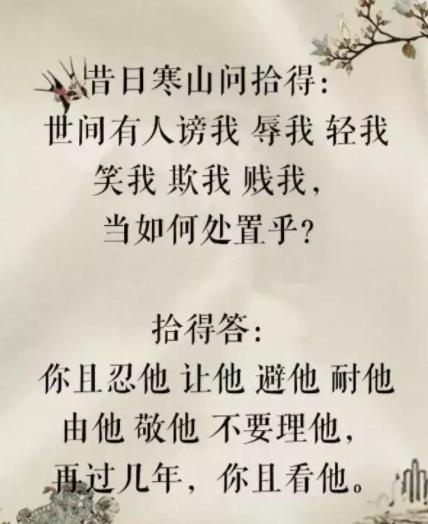 昔日寒山问拾得：
世间有人谤我 辱我 轻我
笑我 欺我 贱我，
当如何处置乎？
拾得答：
你且忍他 让他 避他 耐他
由他 敬他 不要理他，
再过几年，你且看他。